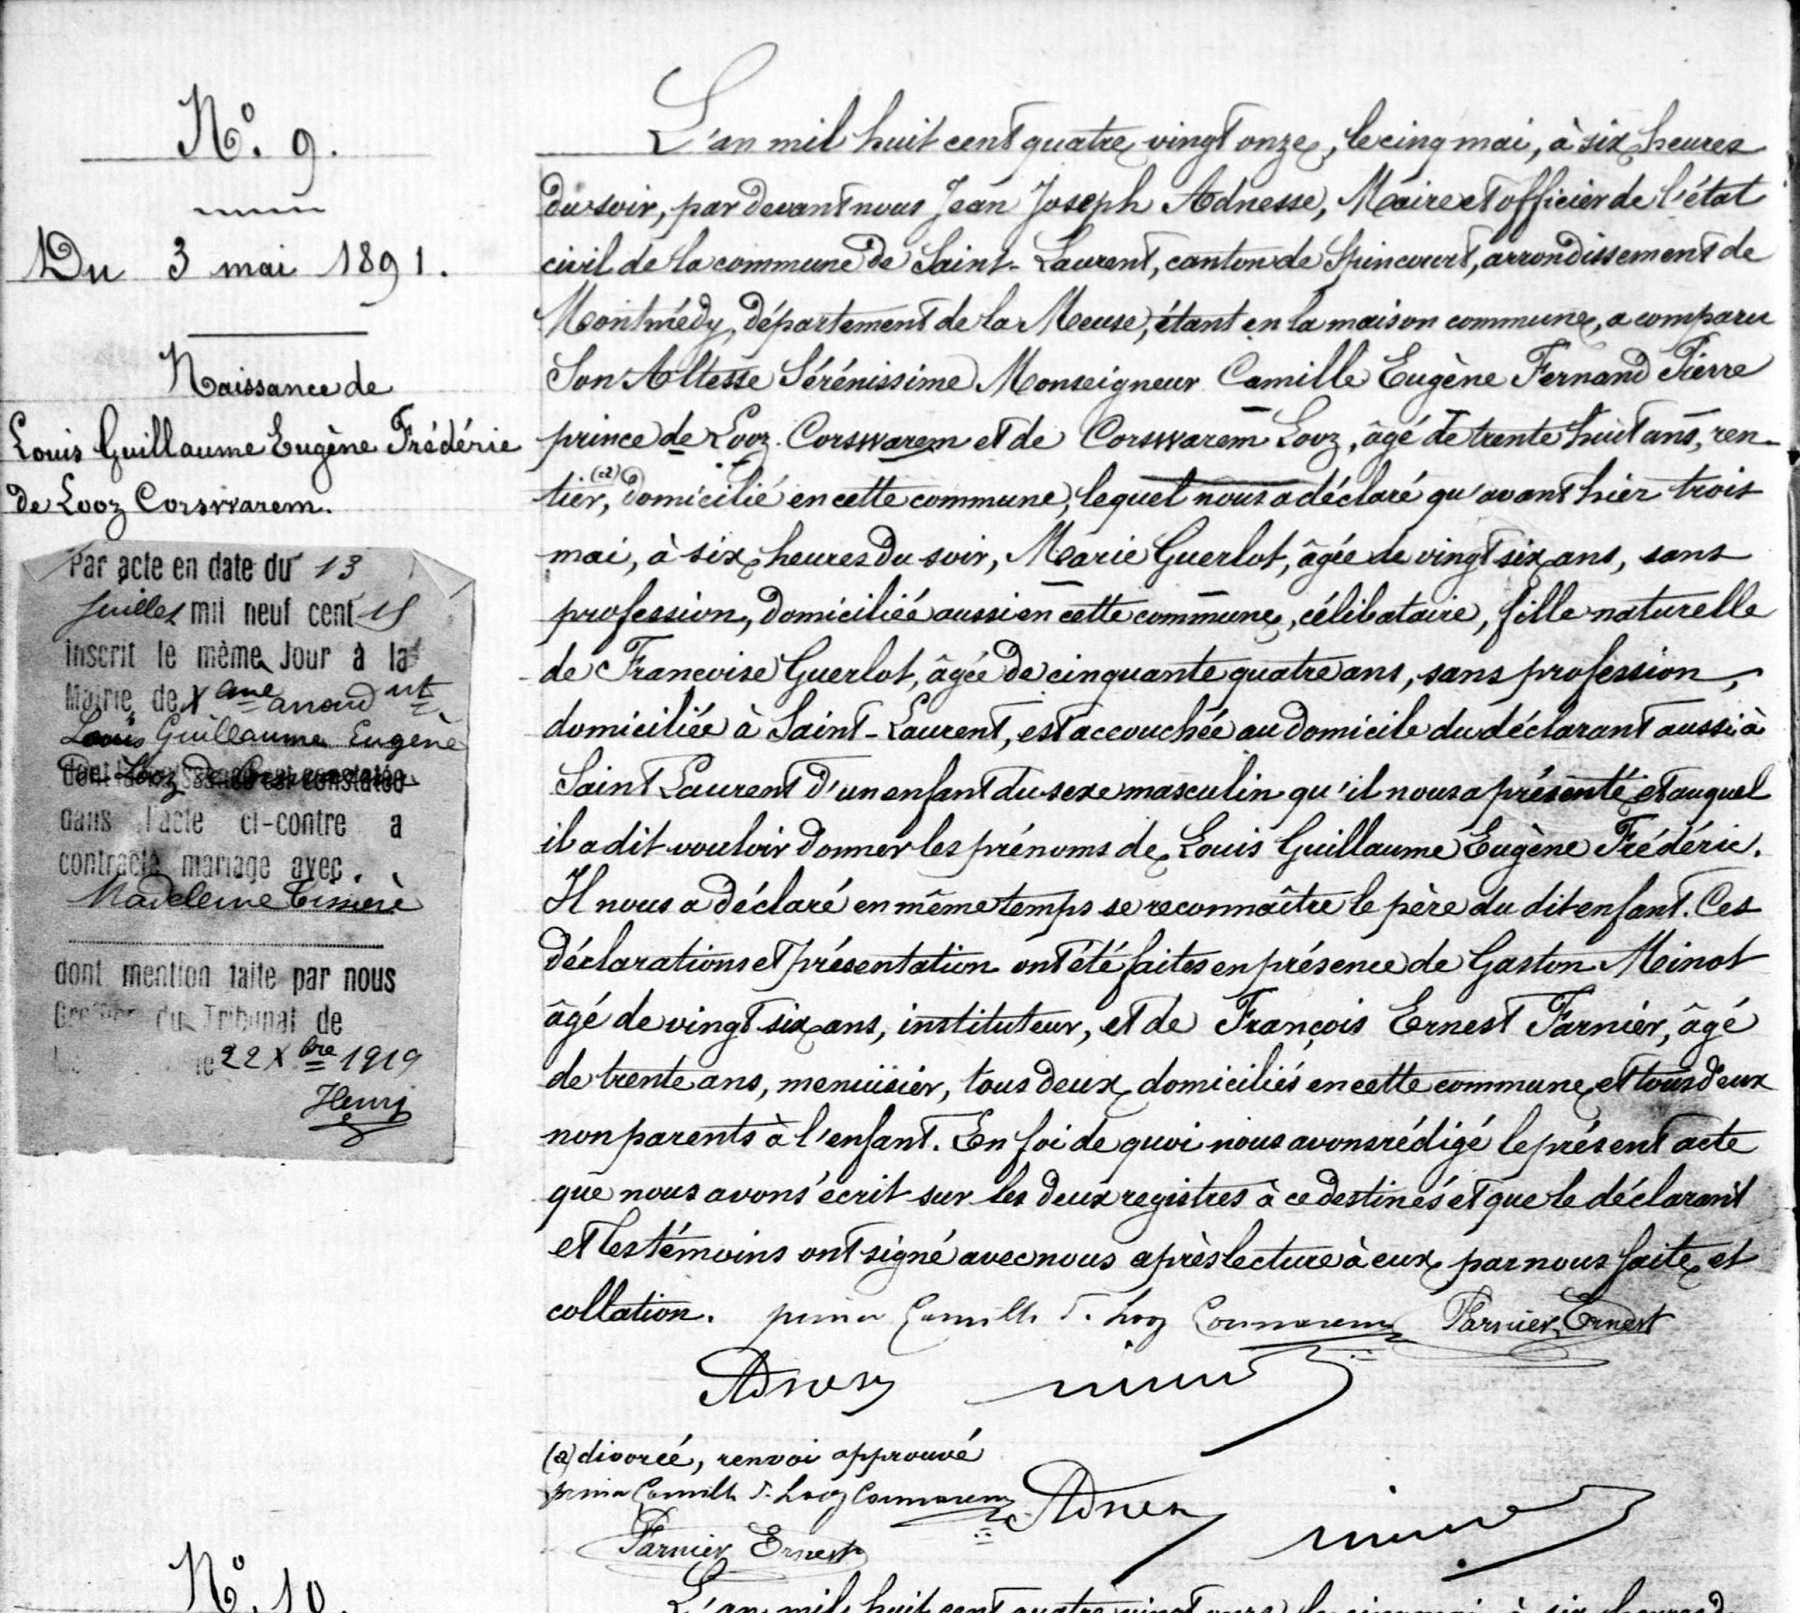 N° 9.
Du 3 mai 1891.
Naissance de
Louis Guillaume Eugène Frédéric
de Looz Corswarem.
Par acte en date du 13
Juillet mil neuf cent 15
inscrit le même Jour à la
Mairie de X ème arrond nt
Louis Guillaume Eugène
dont la naissance est constatée
dans l'acte ci-contre a
contracté mariage avec
Madeleine
dont mention faite par nous
Greffier du Tribunal de
le 22 Xbre 1919
Henry
L'an mil huit cent quatre vingt onze, le cinq mai, à six heures
du soir, par devant nous Jean Joseph Adnesse, Maire et officier de l'état
civil de la commune de Saint-Laurent, canton de Spincourt, arrondissement de
Montmédy, département de la Meuse, étant en la maison commune, a comparu
Son Altesse Sérénissime Monseigneur Camille Eugène Fernand Pierre
prince de Looz Corswarem et de Corswarem Looz, âgé de trente huit ans, ren-
tier, (a) domicilié en cette commune, lequel nous a déclaré qu'avant hier trois
mai, à six heures du soir, Marie Guerlot, âgée de vingt six ans, sans
profession, domiciliée aussi en cette commune, célibataire, fille naturelle
de Francoise Guerlot, âgée de cinquante quatre ans, sans profession,
domiciliée à Saint-Laurent, est accouchée au domicile du déclarant aussi à
Saint Laurent d'un enfant du sexe masculin qu'il nous a présenté et auquel
il a dit vouloir donner les prénoms de Louis Guillaume Eugène Frédéric.
Il nous a déclaré en même temps se reconnaître le père du dit enfant. Ces
déclarations et présentation ont été faites en présence de Gaston Minot
âgé de vingt six ans, instituteur, et de François Ernest Farnier, âgé
de trente ans, menuisier, tous deux domiciliés en cette commune et tous deux
non parents à l'enfant. En foi de quoi nous avons rédigé le présent acte
que nous avons écrit sur les deux registres à ce destinés et que le déclarant
et les témoins ont signé avec nous après lecture à eux par nous faite et
collation. prince Camille d. Looz Corswarem Farnier Ernest
Adnesse Minot
(a) divorcé, renvoi approuvé
prince Camille d. Looz Corswarem Adnesse Minot
Farnier Ernest
N° 10.
L'an mil huit cent quatre vingt onze le cinq mai à six heures